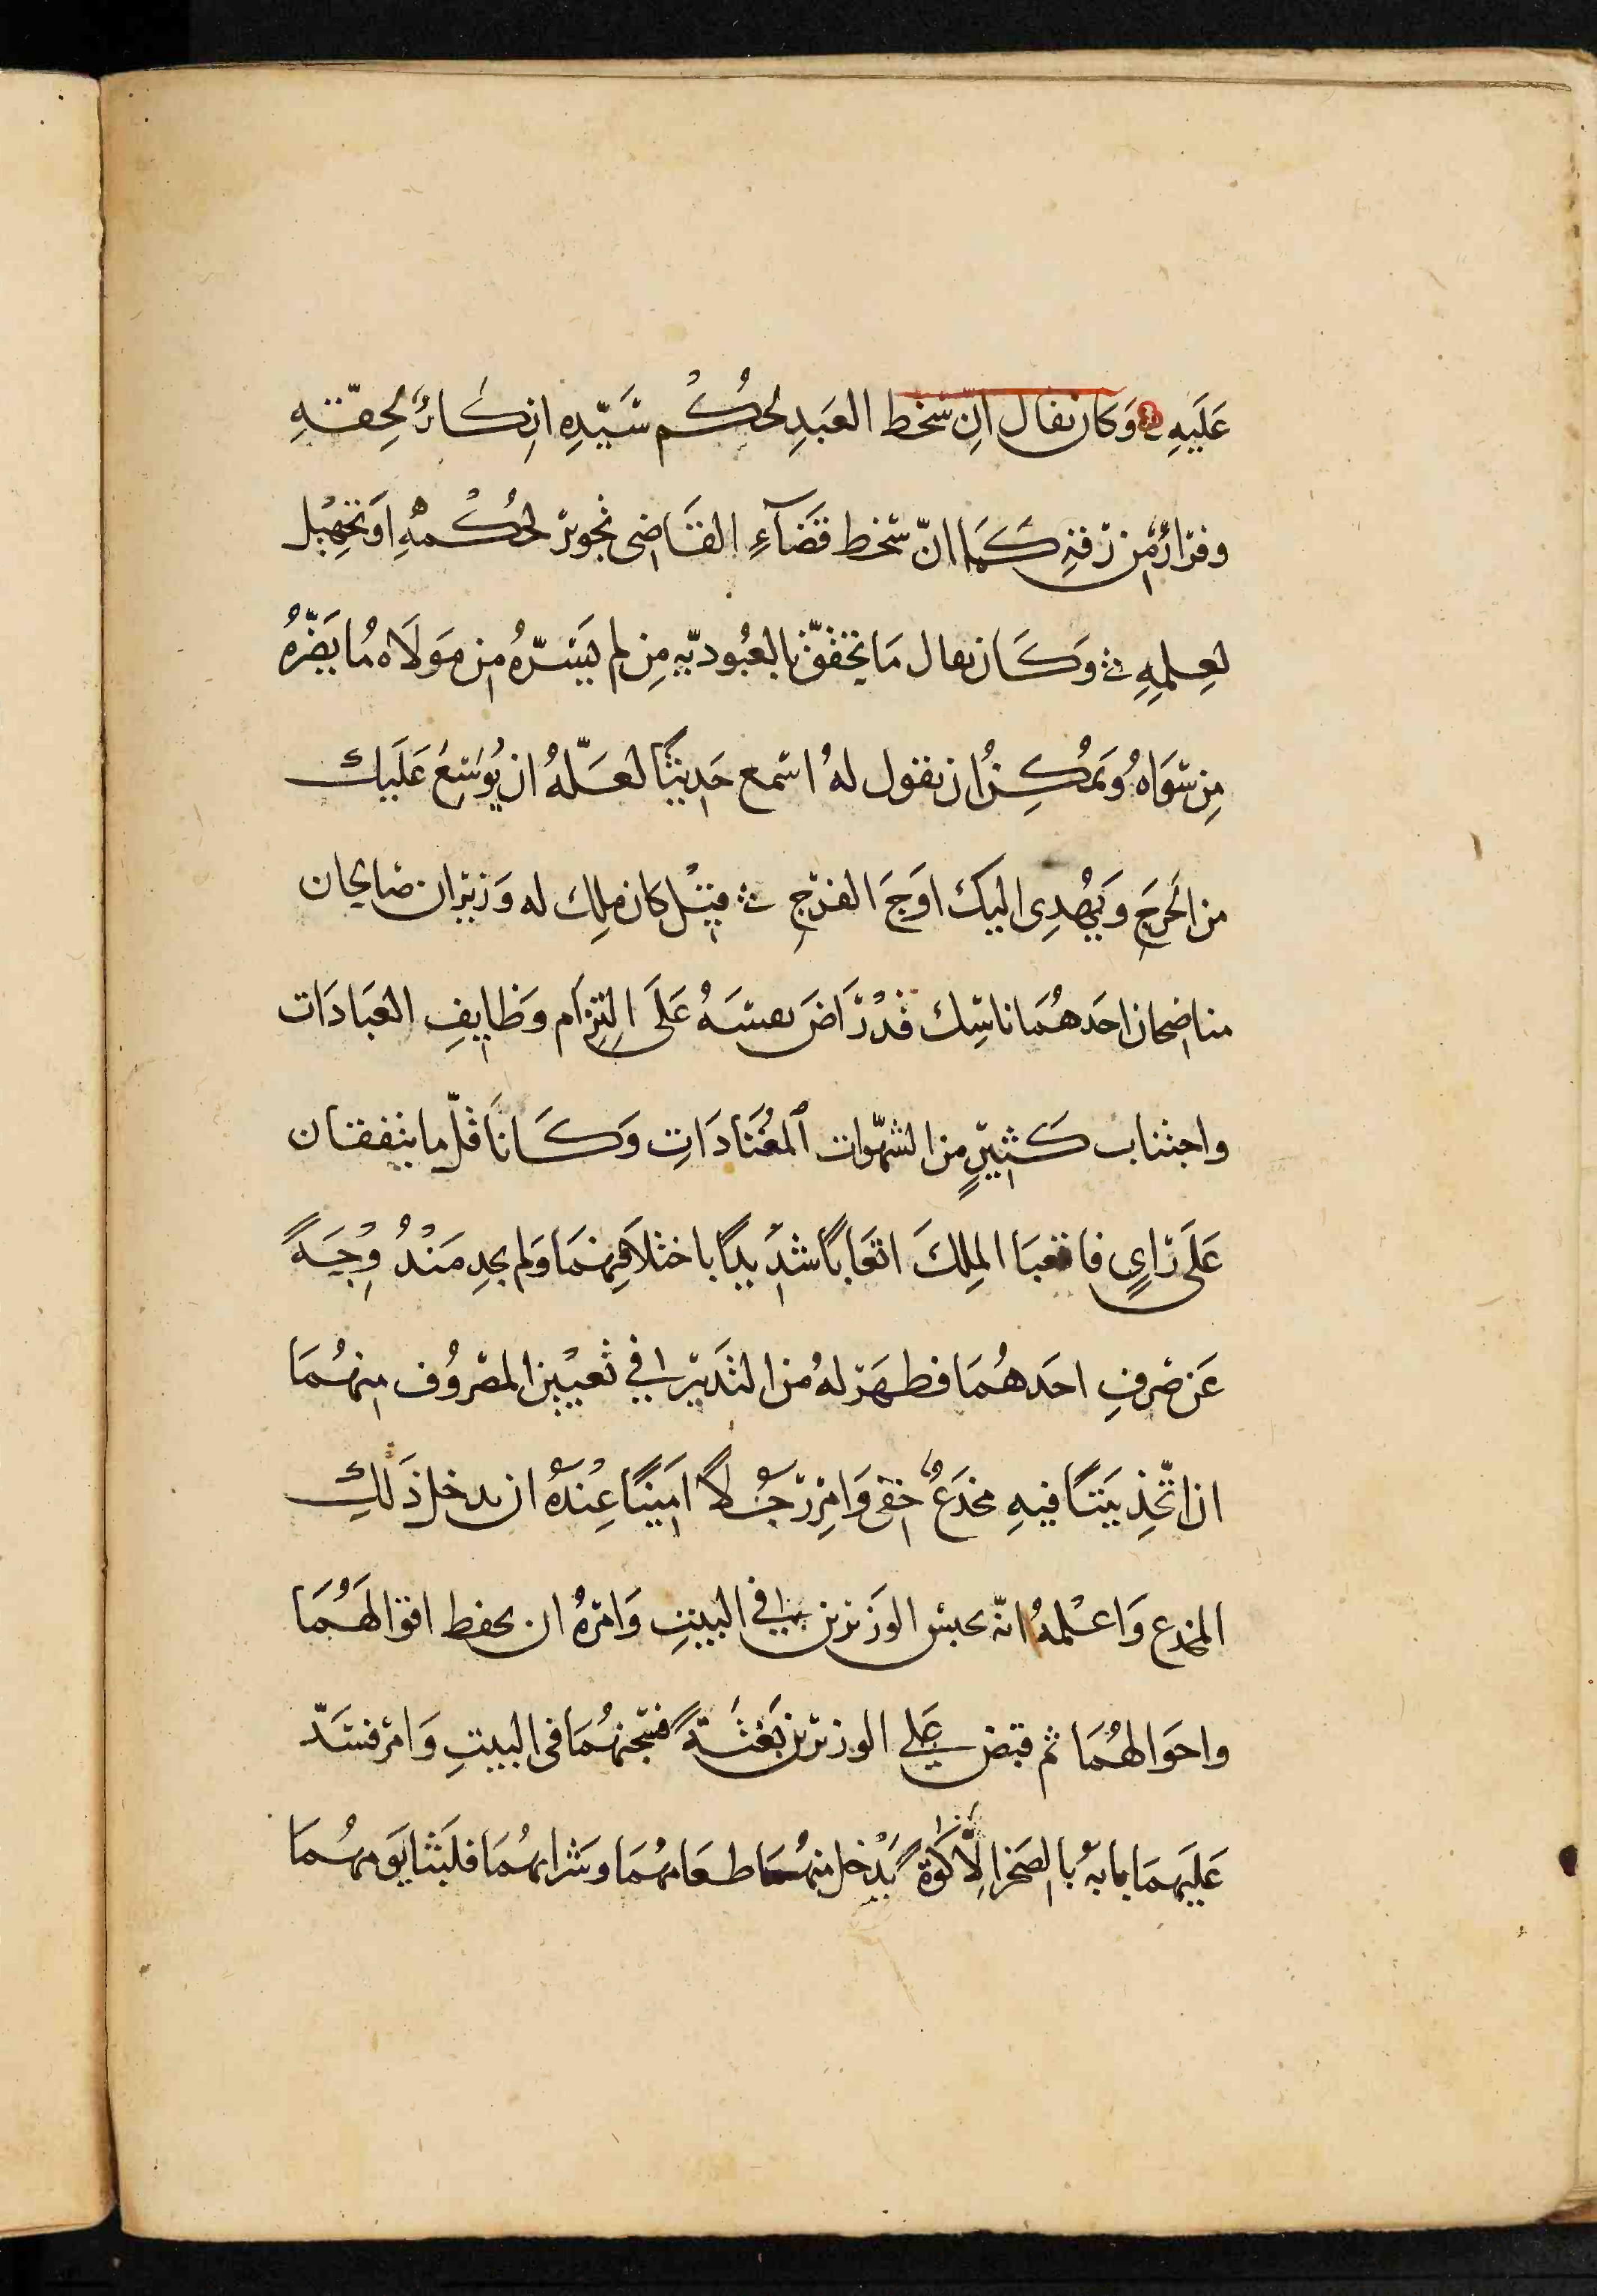 عَلَيهِ وَكان يقال انّ سخط العَبدِ لحُكُم سَيّدِهِ انِكَارٌ لحِقّهِ
وفرَارٌ مِن رقهِ كَمَا انّ سخط قَضَآءِ القَاضى تجوير لحُكُمهِ اوَ تجهِيْل
لعِلمِهِ وَكَان يقال مَا تحققّ بالعُبُوديّه مِن لم يَسرّهُ من مَولَاه مُا يَضّرهُ
مِن سَوَاهُ وَيمُكِنُ ان يقول لهُ اسمع حَديثاً لعَلّهُ ان يُوَسّعُ عَلَيك
من الحَرجَ وَيهُدِى اليكَ اوَجَ الفرَجِ قيْل كان ملِك له وَزيرَان صَالحان
مناصحان احَدهُمَا ناسِك قدْ رَاضَ نفسَهُ عَلَى التِزَام وَظايفِ العبَادَات
واجتناب كَثيرٍ من الشهّوات المعُتَادَاتِ وَكَانَا قَلّ ما يتفقان
عَلَى رَايٍ فاتعبَا الملِكَ اتعَاباً شدَيداً باختلاَفِهمَا وَلم يجدِ مَندُوحَةً
عَن صَرفِ احَدهُمَا فظهَرَ لهُ من التدَبير في تعييْن المصَرُوف منهُمَا
ان اتّخِذ بَيتاً فيهِ مخدَعٌ خفى وَامَر رَجُلاً امَيناً عِنْدهُ ان يدخل ذَلكِ
المخدع وَاعْلمهُ انّه يحبس الوَزيرين في البيتِ وَامَرهُ ان يحفظ اقوَالهُمَا
واحَوَالهُمَا ثم قبض عَلى الوزيرين بَغتَةً فسَجنهُمَا فى البيتِ وَامَر فسَدّ
عَليهمَا بابهُ بالصَخر الّا كوَّةً يُدْخل منهُمَا طعَامهُمَا وشرابهُمَا فلبَثَا يَومهُمَا